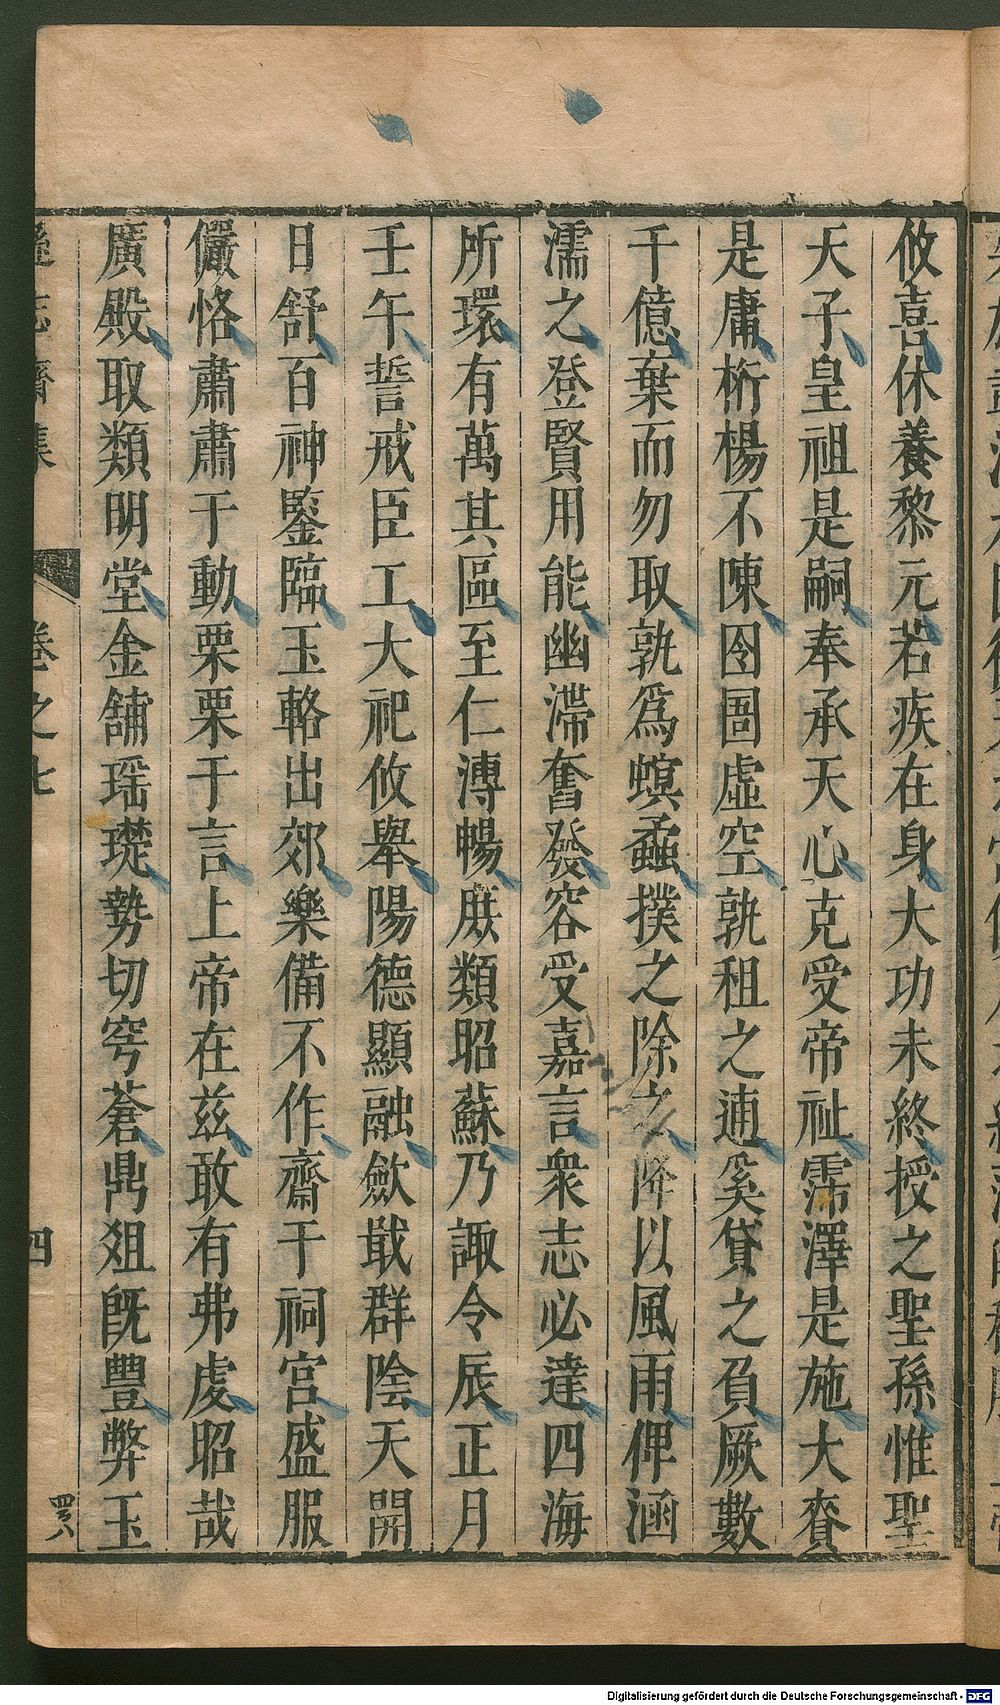 攸喜休養黎元若疾在身大功未終授之聖孫惟聖
天子皇祖是嗣奉承天心克受帝祉霈澤是施大賚
是庸桁楊不陳囹圄虛空孰租之逋奚貸之負厥數
千億棄而勿取孰爲螟蟊撲之除之降以風雨俾涵
濡之登賢用能幽滯奮發容受嘉言衆志必達四海
所環有萬其區至仁溥暢庶類昭蘇乃諏令辰正月
壬午誓戒臣工大祀攸舉陽德顯融歛戢群陰天開
日舒百神鑒臨玉輅出郊樂備不作齋于祠宮盛服
儼恪肅肅于動栗栗于言上帝在茲敢有弗虔昭哉
廣殿取類明堂金鋪瑶璴勢切穹蒼鼎俎旣豐弊玉
遜志齋集
卷之七
四
四ろ八
Digitalisierung gefördert durch die Deutsche Forschungsgemeinschaft - DFG